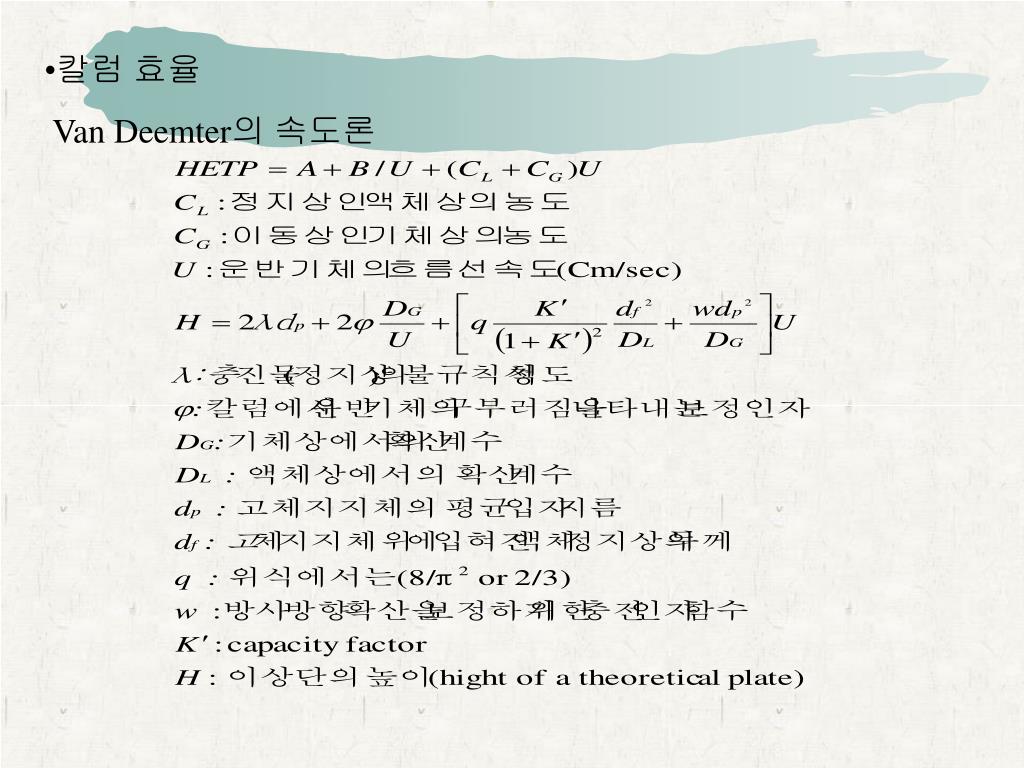 •칼럼 효율
Van Deemter의 속도론
HETP = A + B / U + (C_L + C_G)U
C_L : 정지상인액체상의농도
C_G : 이동상인기체상의농도
U : 운반기체의흐름선속도(Cm/sec)
H = 2λd_p + 2φ D_G/U + [q K′/(1 + K′)² d_f²/D_L + wd_p²/D_G]U
λ: 충진물(정지상)의불규칙정도
φ: 칼럼에서운반기체의구부러짐을나타내는보정인자
D_G: 기체상에서의확산계수
D_L : 액체상에서의 확산계수
d_p : 고체지지체의 평균입자지름
d_f : 고체지지체위에입혀진액체정지상의두께
q : 위식에서는(8/π² or 2/3)
w : 방사방향확산을보정하기위한충전인자함수
K′ : capacity factor
H : 이상단의높이(hight of a theoretical plate)